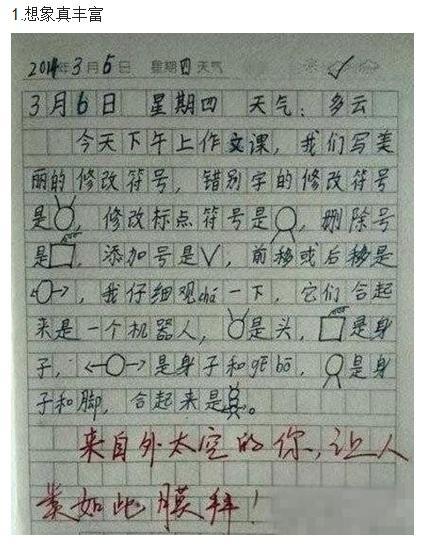 1.想象真丰富
2014年3月6日 星期四天气
3月6日 星期四 天气：多云
今天下午上作文课，我们写美
丽的修改符号，错别字的修改符号
是，修改标点符号是，删除号
是，添加号是，前移或后移是
，我仔细观chá一下，它们合起
来是一个机器人，是头，是身
子，是身子和gē bō，是身
子和脚，合起来是。
来自外太空的你，让人
类如此膜拜！